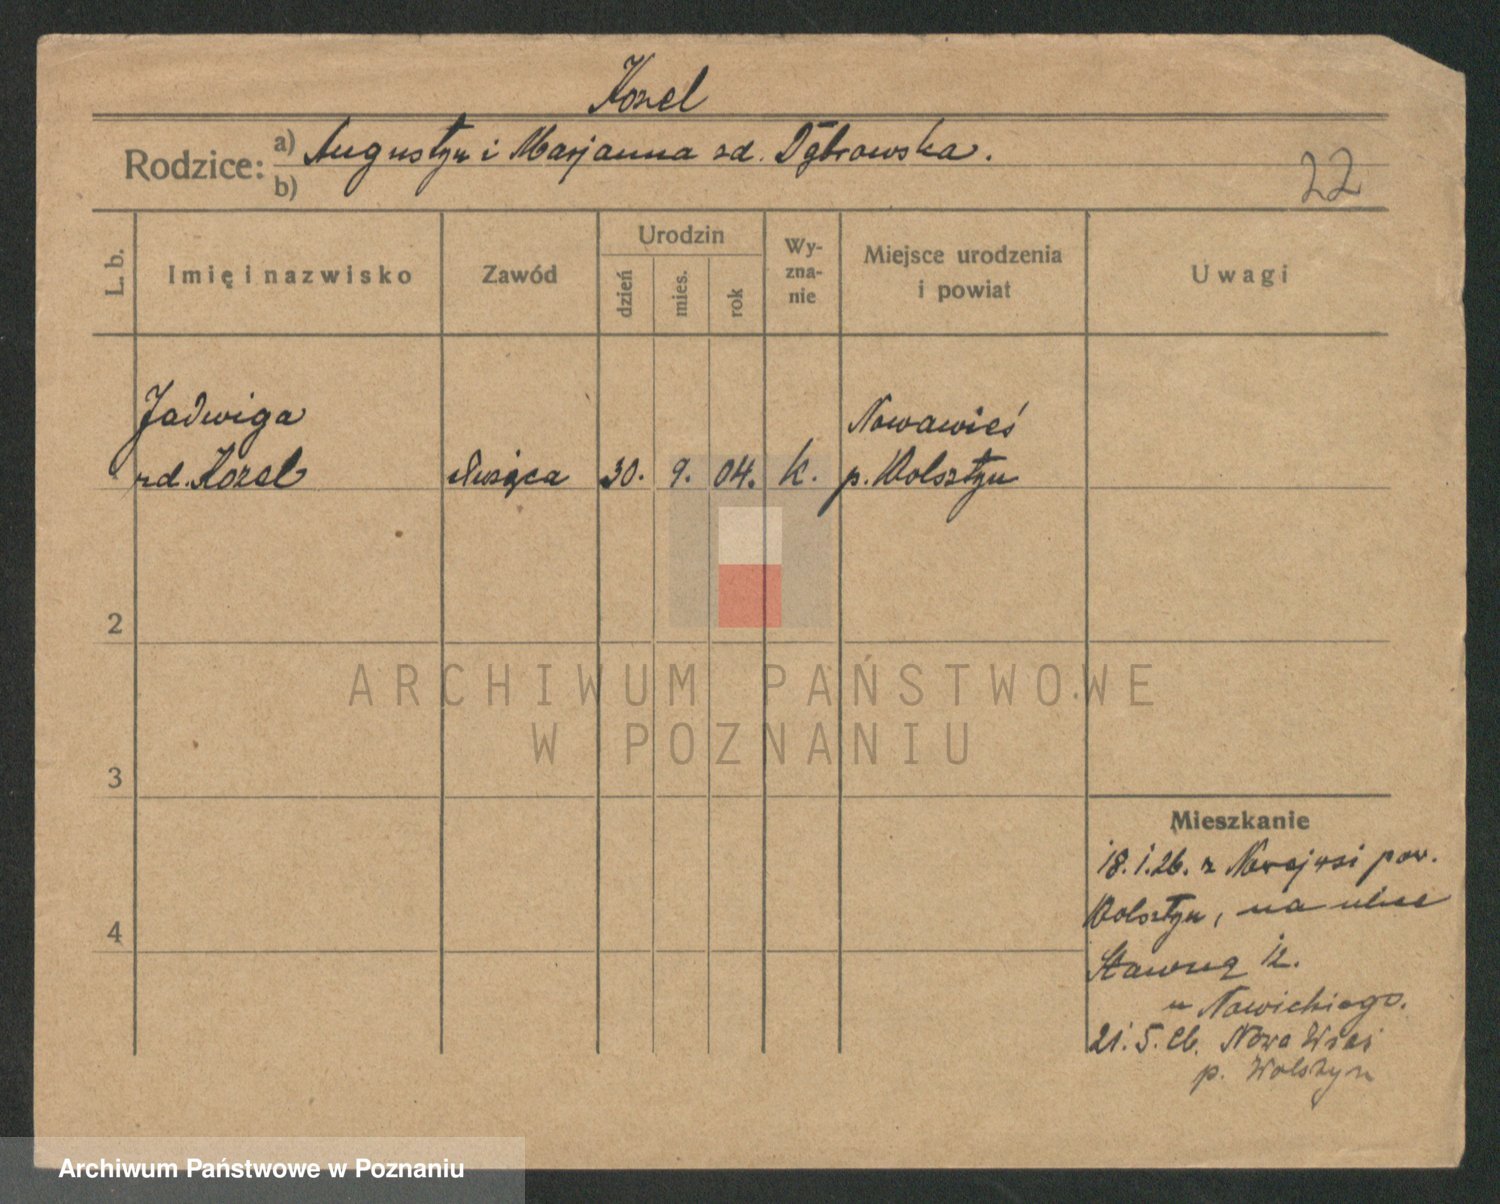 Kozel
Rodzice: a) Augustyn i Marjanna zd. Dąbrowska.
b)
22
L. b.
Imię i nazwisko
Zawód
Urodzin
dzień
mies.
rok
Wy-
zna-
nie
Miejsce urodzenia
i powiat
Uwagi
Jadwiga
zd. Kozel
służąca
30.
9.
04.
k.
Nowawieś
p. Wolsztyn
2
3
4
ARCHIWUM PAŃSTWOWE
W POZNANIU
Mieszkanie
18.1.26. z Nowejwsi pow.
Wolsztyn, na ulice
Stawną 12.
u Nowickiego.
21.5.26. Nowa Wieś
p. Wolsztyn
Archiwum Państwowe w Poznaniu